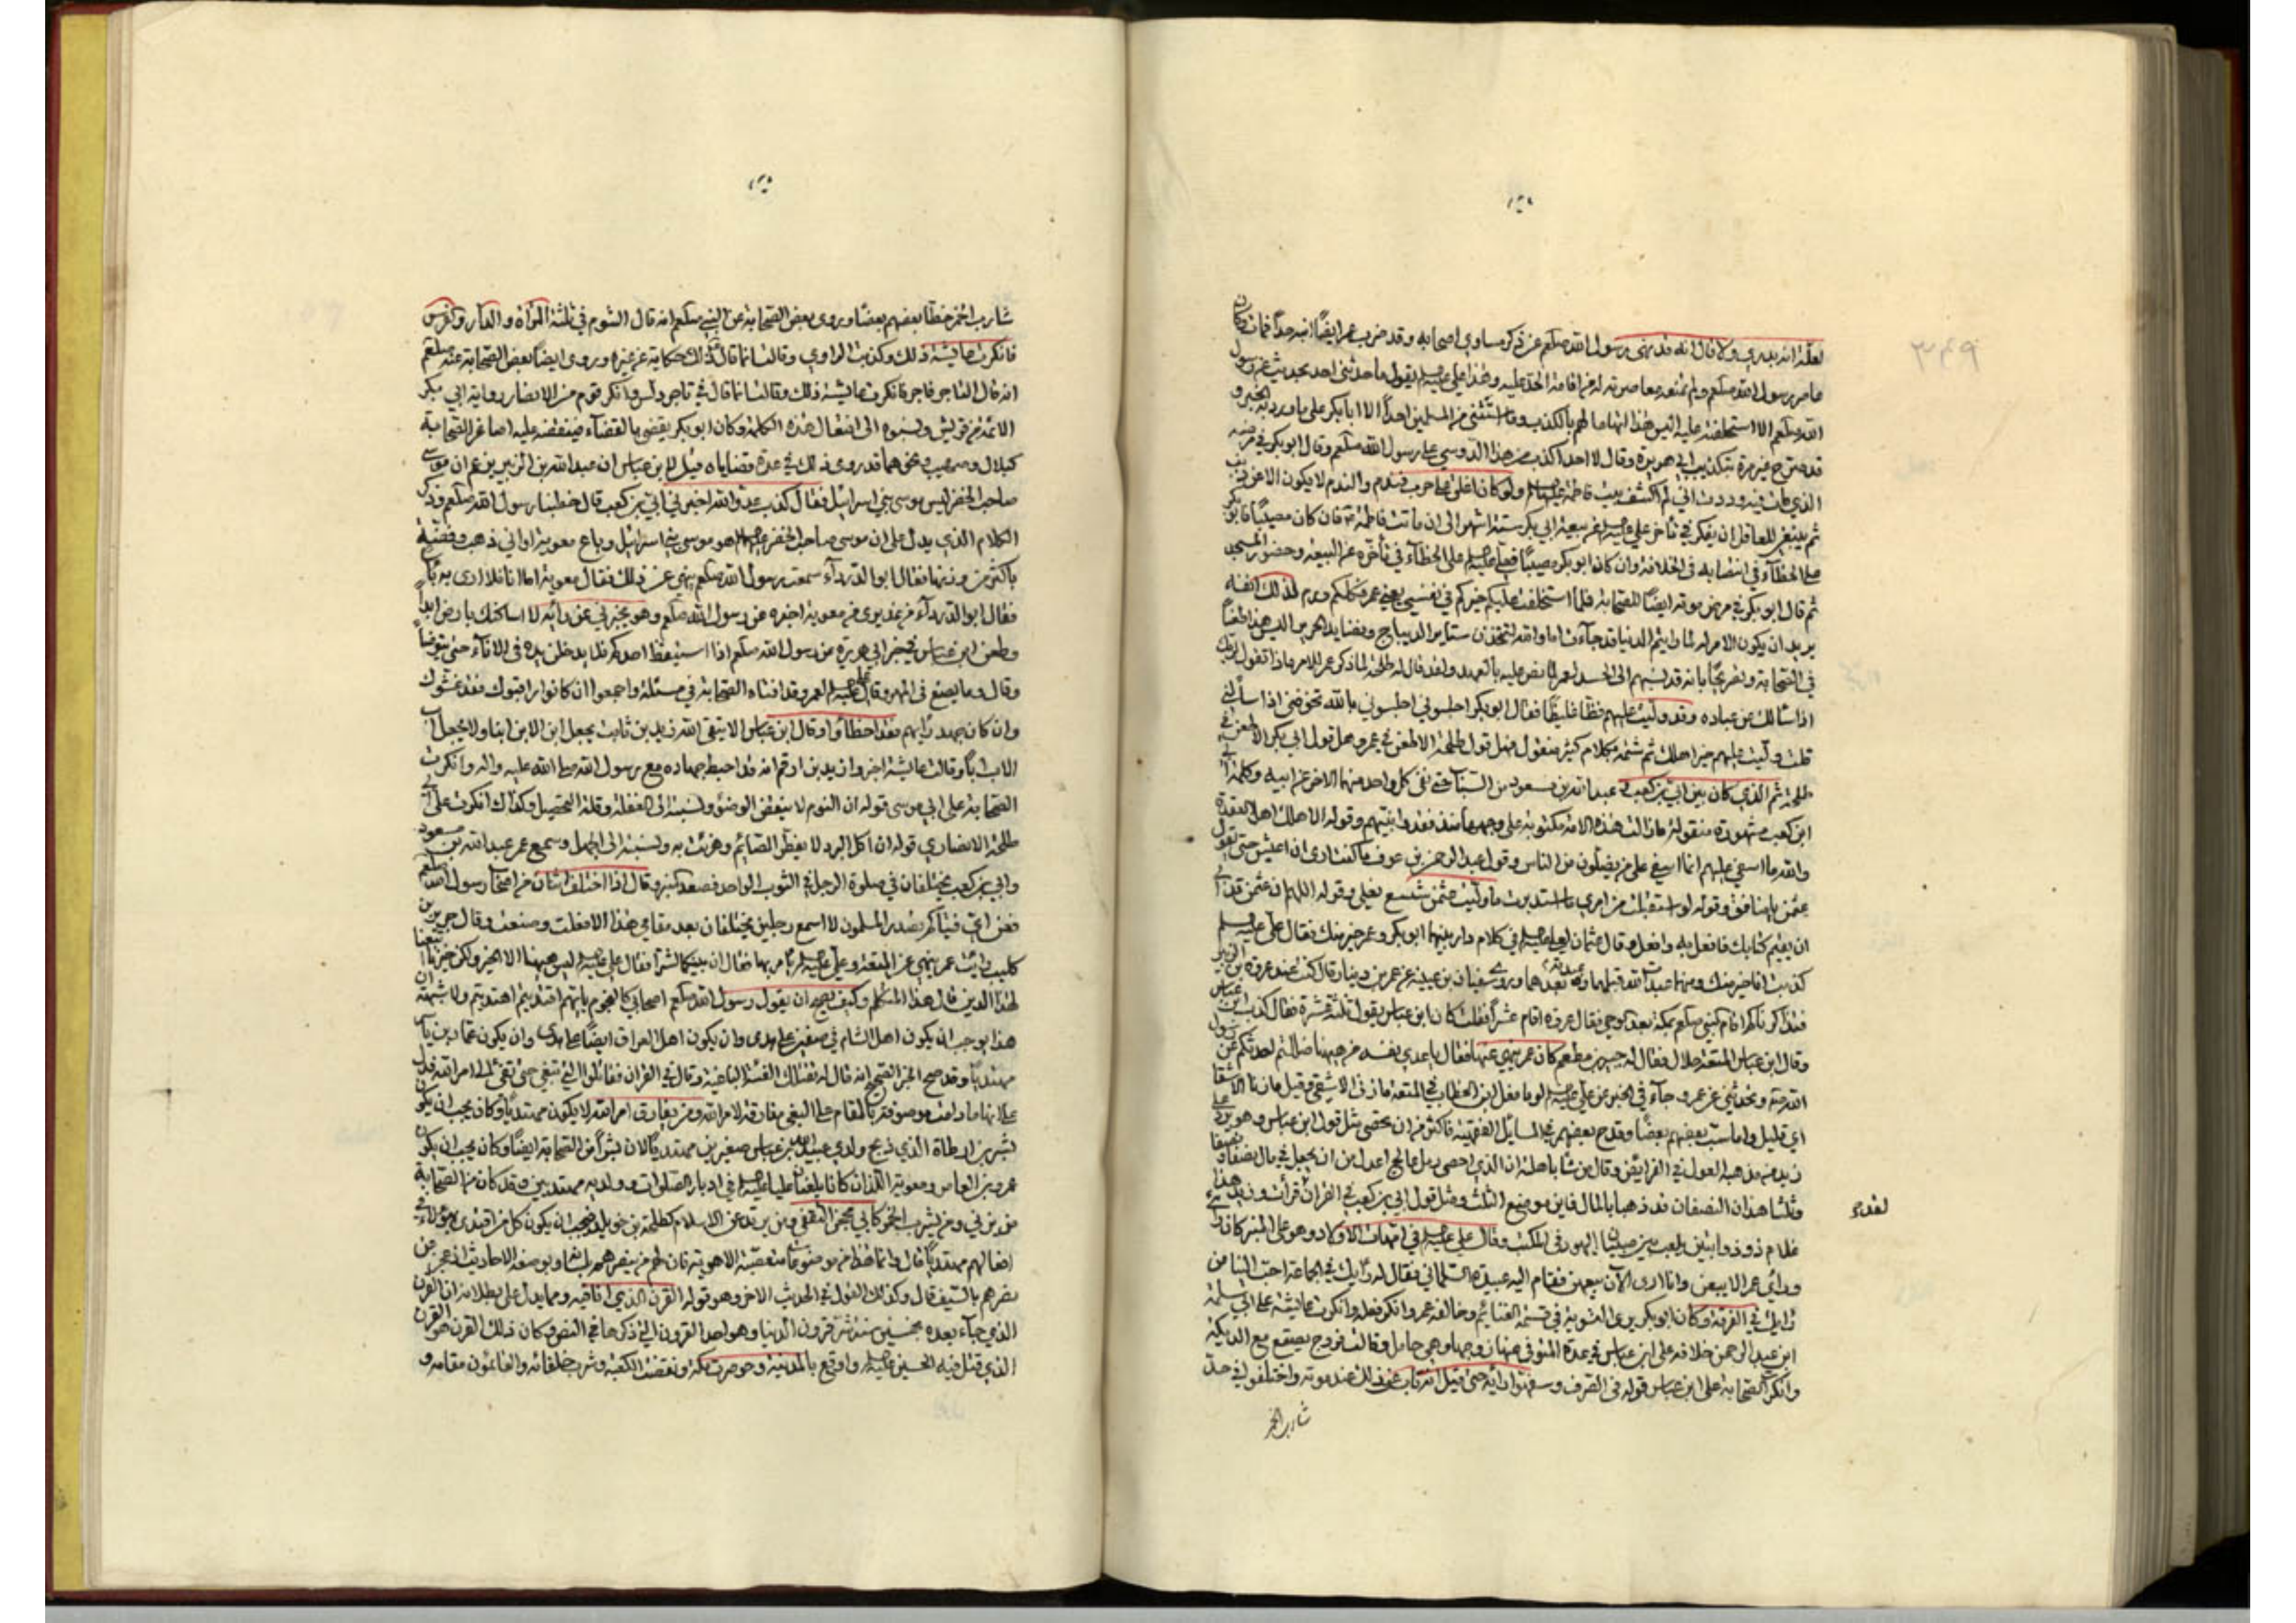 لعلة انه بدري ولا قال انه قد نهى رسول الله صلعم عن ذكر مساوي اصحابه وقد ضرب عمر ايضاً ابنه حداً فمات وكان
ما مر رسول الله صلعم ولم تمنعه معاصرته له من اقامة الحد عليه وهذا علي عليه السلم يقول ما حدثني احد بحديث عن رسول
الله صلعم الا استحلفته عليه اليس هذا اتهاما لهم بالكذب وما استثنى من المسلمين احداً الا ابابكر على ما ورد به الخبر و
قد صرح غير مرة بتكذيب ابي هريرة وقال لا احد اكذب من هذا الدوسي على رسول الله صلعم وقال ابو بكر في مرضه
الذي مات فيه وددت اني لم اكشف بيت فاطمة عليها السلم ولو كان اغلق على حرب فندم والندم لا يكون الا عن ذنب
ثم ينبغي للعاقل ان يفكر في تأخر علي عليه السلم عن بيعة ابي بكر ستة اشهر الى ان ماتت فاطمة فان كان مصيباً فابو بكر
على الخطاء في انتصابه في الخلافة وان كان ابو بكر مصيباً فعلي عليه السلم على الخطاء في تأخره عن البيعة وحضور المسجد
ثم قال ابو بكر في مرض موته ايضاً للصحابة فلما استخلفت عليكم خيركم في نفسي يعني عمر فكلكم ورم لذلك انفه
يريد ان يكون الامر له لما رايتم الدنيا قد جاءت اما والله لتتخذن ستاير الديباج ونضايد الحرير اليس هذا طعناً
في الصحابة وتصريحاً بانه قد نسبهم الى الحسد لعمر لما نص عليه بالعهد ولقد قال له طلحة لما ذكر عمر للامر ماذا تقول لربك
اذا سألك عن عباده وقد وليت عليهم فظا غليظاً فقال ابو بكر اجلسوني اجلسوني بالله تخوفني اذا سألني
قلت وليت عليهم خير اهلك ثم شتمه بكلام كثير منقول فهل قول طلحة الا طعن في عمر وهل قول ابي بكر الا طعن في
طلحة ثم الذي كان بين ابي بن كعب وعبد الله بن مسعود من السباب حتى نفى كل واحد منهما الاخر عن ابيه وكلمة ابي
ابن كعب مشهورة منقولة ما زالت هذه الامة مكبوبة على وجهها منذ فقدوا نبيهم وقوله الا هلك اهل العقدة
والله ما اسى عليهم انما اسى على من يضلون من الناس وقول عبد الرحمن بن عوف ما كنت ارى ان اعيش حتى يقول لي
عثمن يا منافق وقوله لو استقبلت من امري ما استدبرت ما وليت عثمن شسع نعلي وقوله اللهم ان عثمن قد ابى
ان يقيم كتابك فافعل به وافعل وقال عثمان لعلي عليه السلم في كلام دار بينهما ابو بكر وعمر خير منك فقال علي عليه السلم
كذبت انا خير منك ومنهما عبدت الله قبلهما وعبدته بعدهما وروى سفيان بن عيينة عن عمر بن دينار قال كنت عند عروة بن الزبير
فتذاكرنا كم اقام النبي صلعم بمكة بعد الوحي فقال عروة اقام عشراً فقلت كان ابن عباس يقول ثلثة عشرة فقال كذب ابن عباس
وقال ابن عباس المتعة حلال فقال له جبير بن مطعم كان عمر ينهى عنها فقال يا عدي نفسه من ههنا ضللتم احدثكم عن رسول
الله وتحدثني عن عمر وجاء في الخبر عن علي عليه السلم لولا ما فعل ابن الخطاب في المتعة ما زنى الا شقي وقيل ما زنا الا شفا
اي قليل واما سب بعضهم بعضاً وقدح بعضهم في المسايل الفقهية فاكثر من ان يحصى مثل قول ابن عباس وهو يرد على
زيد مذهبه العول في الفرايض وقال من شا باهلته ان الذي احصى رمل عالج اعدا من ان يجعل في مال نصفا ونصفا
وثلثا هذان النصفان قد ذهبا بالمال فاين موضع الثلث ومثل قول ابي بن كعب في القران قرأت وزيد هذا
غلام ذو ذوابتين يلعب بين صبيان اليهود في المكتب وقال علي عليه السلم في امهات الاولاد وهو على المنبر كان رايي
وراي عمر الا يبعن وانا ارى الآن بيعهن فقام اليه عبيدة السلماني فقال له رأيك في الجماعة احب الينا من
رأيك في الفرقة وكان ابو بكر يرى التسوية في قسمة الغنايم وخالفه عمر وانكر فعله وانكرت عائشة على ابي سلمة
ابن عبد الرحمن خلافه على ابن عباس في عدة المتوفى عنها زوجها وهي حامل وقالت فروج يصقع مع الديكة
وانكرت الصحابة على ابن عباس قوله في الصرف وسفهوا رأيه حتى قيل انه تاب عن ذلك عند موته واختلفوا في حد
شارب الخمر
شارب الخمر خطأ بعضهم بعضا وروى بعض الصحابة عن النبي صلعم انه قال الشوم في ثلثة المرأة والدار والفرس
فانكرت عايشة ذلك وكذبت الراوي وقالت انما قال ذلك حكاية عن غيره وروى ايضاً بعض الصحابة عنه صلعم
انه قال التاجر فاجر فانكرت عايشة ذلك وقالت انما قال في تاجر دلس وانكر قوم من الانصار رواية ابي بكر
الائمة من قريش ونسبوه الى افتعال هذه الكلمة وكان ابو بكر يقضي بالقضاء فينقضه عليه اصاغر الصحابة
كبلال وصهيب ونحوهما قد روى ذلك في عدة قضايا وقيل لابن عباس ان عبد الله بن الزبير يزعم ان موسى
صاحب الخضر ليس موسى بني اسرائيل فقال كذب عدو الله اخبرني ابي بن كعب قال خطبنا رسول الله صلعم وذكر
الكلام الذي يدل على ان موسى صاحب الخضر عليه السلم هو موسى بني اسرائيل وباع معوية اواني ذهب وفضة
باكثر من وزنها فقال ابو الدرداء سمعت رسول الله صلعم ينهى عن ذلك فقال معوية اما انا فلا ارى به بأساً
فقال ابو الدرداء من عذيري من معوية اخبره عن رسول الله صلعم وهو يخبرني عن رائه لا اساكنك بارض ابداً
وطعن ابن عباس في خبر ابي هريرة عن رسول الله صلعم اذا استيقظ احدكم فلا يدخلن يده في الاناء حتى يتوضأ
وقال وما يصنع في المهر وقال علي عليه السلم لعمر وقد افتاه الصحابة في مسئلة واجمعوا ان كانوا راقبوك فقد غشوك
وان كان جهد رأيهم فقد اخطأوا وقال ابن عباس الا يتقي الله زيد بن ثابت يجعل ابن الابن ابنا ولا يجعل اب
الاب اباً وقالت عايشة اخبروا زيد بن ارقم انه قد احبط جهاده مع رسول الله صلى الله عليه واله وانكرت
الصحابة على ابي موسى قوله ان النوم لا ينقض الوضوء ونسبته الى الغفلة وقلة التحصيل وكذلك انكرت على ابي
طلحة الانصاري قوله ان اكل البرد لا يفطر الصائم وهزئت به ونسبته الى الجهل وسمع عمر عبد الله بن مسعود
وابي بن كعب يختلفان في صلوة الرجل في الثوب الواحد فصعد المنبر وقال اذا اختلف اثنان من اصحاب رسول الله صلعم
فعن اي فتياكم يصدر المسلمون لا اسمع رجلين يختلفان بعد مقامي هذا الا فعلت وصنعت وقال جرير بن
كليب رايت عمر ينهى عن المتعة وعلي عليه السلم يأمر بها فقال ان بينكما لشراً فقال علي عليه السلم ليس بيننا الا الخير ولكن خيرنا اتبعنا
لهذا الدين قال هذا المتكلم وكيف يصح ان يقول رسول الله صلعم اصحابي كالنجوم بايهم اقتديتم اهتديتم ولا شبهة ان
هذا يوجب ان يكون اهل الشام في صفين على هدى وان يكون اهل العراق ايضاً على هدى وان يكون قاتل عمار بن ياسر
مهتدياً وقد صح الخبر الصحيح انه قال له تقتلك الفئة الباغية وقال في القران فقاتلوا التي تبغي حتى تفئ الى امر الله فدل
على انها ما دامت موصوفة بالمقام على البغي مفارقة لامر الله ومن يفارق امر الله لا يكون مهتدياً وكان يجب ان يكون
بسر بن ارطاة الذي ذبح ولدي عبيد الله بن عباس صغيرين مهتدياً لان بسراً من الصحابة ايضاً وكان يجب ان يكون
عمرو بن العاص ومعوية اللذان كانا يلعنان علياً عليه السلم في ادبار الصلوات وولديه مهتديين وقد كان من الصحابة
من يزني ومن يشرب الخمر كابي محجن الثقفي ومن يرتد عن الاسلام كطلحة بن خويلد فيجب ان يكون كل من اقتدى بهؤلاء في
افعالهم مهتدياً قال وانما هذا من موضوعات متعصبة الاموية فان لهم من ينصرهم بلسانه وبوضعه الاحاديث اذا عجز عن
نصرهم بالسيف قال وكذلك القول في الحديث الاخر وهو قوله القرن الذي انا فيه ومما يدل على بطلانه ان القرن
الذي جاء بعده بخمسين سنة شر قرون الدنيا وهو احد القرون التي ذكرها في النص وكان ذلك القرن هو القرن
الذي قتل فيه الحسين عليه السلم واوقع بالمدينة وحوصرت مكة ونقضت الكعبة وشرب خلفائه والقائمون مقامه و